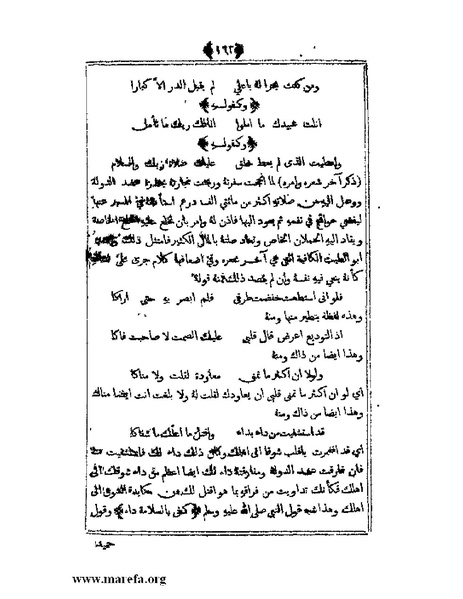 ﴿١٩٢﴾
ومن كنت بحرا له يا علي لم يقبل الدر الا كبارا
﴿ وكقوله ﴾
انلت عبيدك ما املوا انالك ربك ما تأمل
﴿ وكقوله ﴾
واعطيت الذى لم يعط خلق عليك صلاة ربك والسلام
(ذكر آخر شعره وامره) لما انجحت سفرته وربحت تجارته بحضرة عضد الدولة
ووصل اليه من صلاته اكثر من مائتي الف درهم استأذنه في المسير عنها
ليقضي حوائج في نفسه ثم يعود اليها فاذن له وامر بان تخلع عليه الخلع الخاصة
ويقاد اليه الحملان الخاص وتعاد صلته بالمال الكثير فامتثل ذلك
ابو الطيب الكافية التي هي آخر شعره وفي اضعافها كلام جرى على
كأنه ينعي فيه نفسه وان لم يقصد ذلك فمنه قوله
فلو انى استطعت خفضت طرفى فلم ابصر به حتى اراكا
وهذه لفظة يتطير منها ومنه
اذ التوديع اعرض قال قلبى عليك الصمت لا صاحبت فاكا
وهذا ايضا من ذاك ومنه
ولولا ان اكثر ما تمنى معاودة لقلت ولا مناكا
أي لو ان اكثر ما تمنى قلبي ان يعاودك لقلت له ولا بلغت انت ايضا مناك
وهذا ايضا من ذاك ومنه
قد استشفيت من داء بداء واقتل ما اعلك ما شفاكا
أي قد اضمرت يا قلب شوقا الى اهلك وكان ذلك داء لك فاستشفيت منه
فان فارقت عضد الدولة ومفارقته داء لك ايضا اعظم من داء شوقك الى
اهلك فكأنك تداويت من فراقه بما هو اقتل لك من مكابدة الشوق الى
اهلك وهذا شبه قول النبي صلى الله عليه وسلم ﴿ كفى بالسلامة داء ﴾ وقول
حميد
www.marefa.org